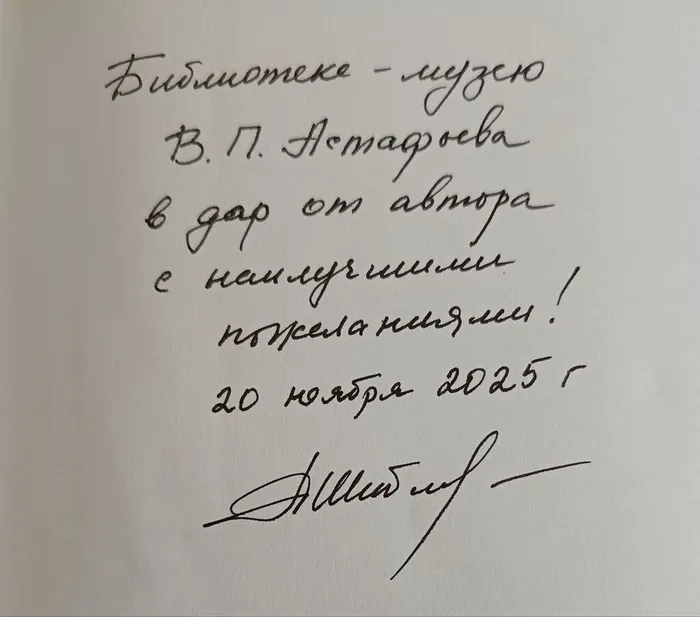 Библиотеке - музею
В. П. Астафьева
в дар от автора
с наилучшими
пожеланиями!
20 ноября 2025 г